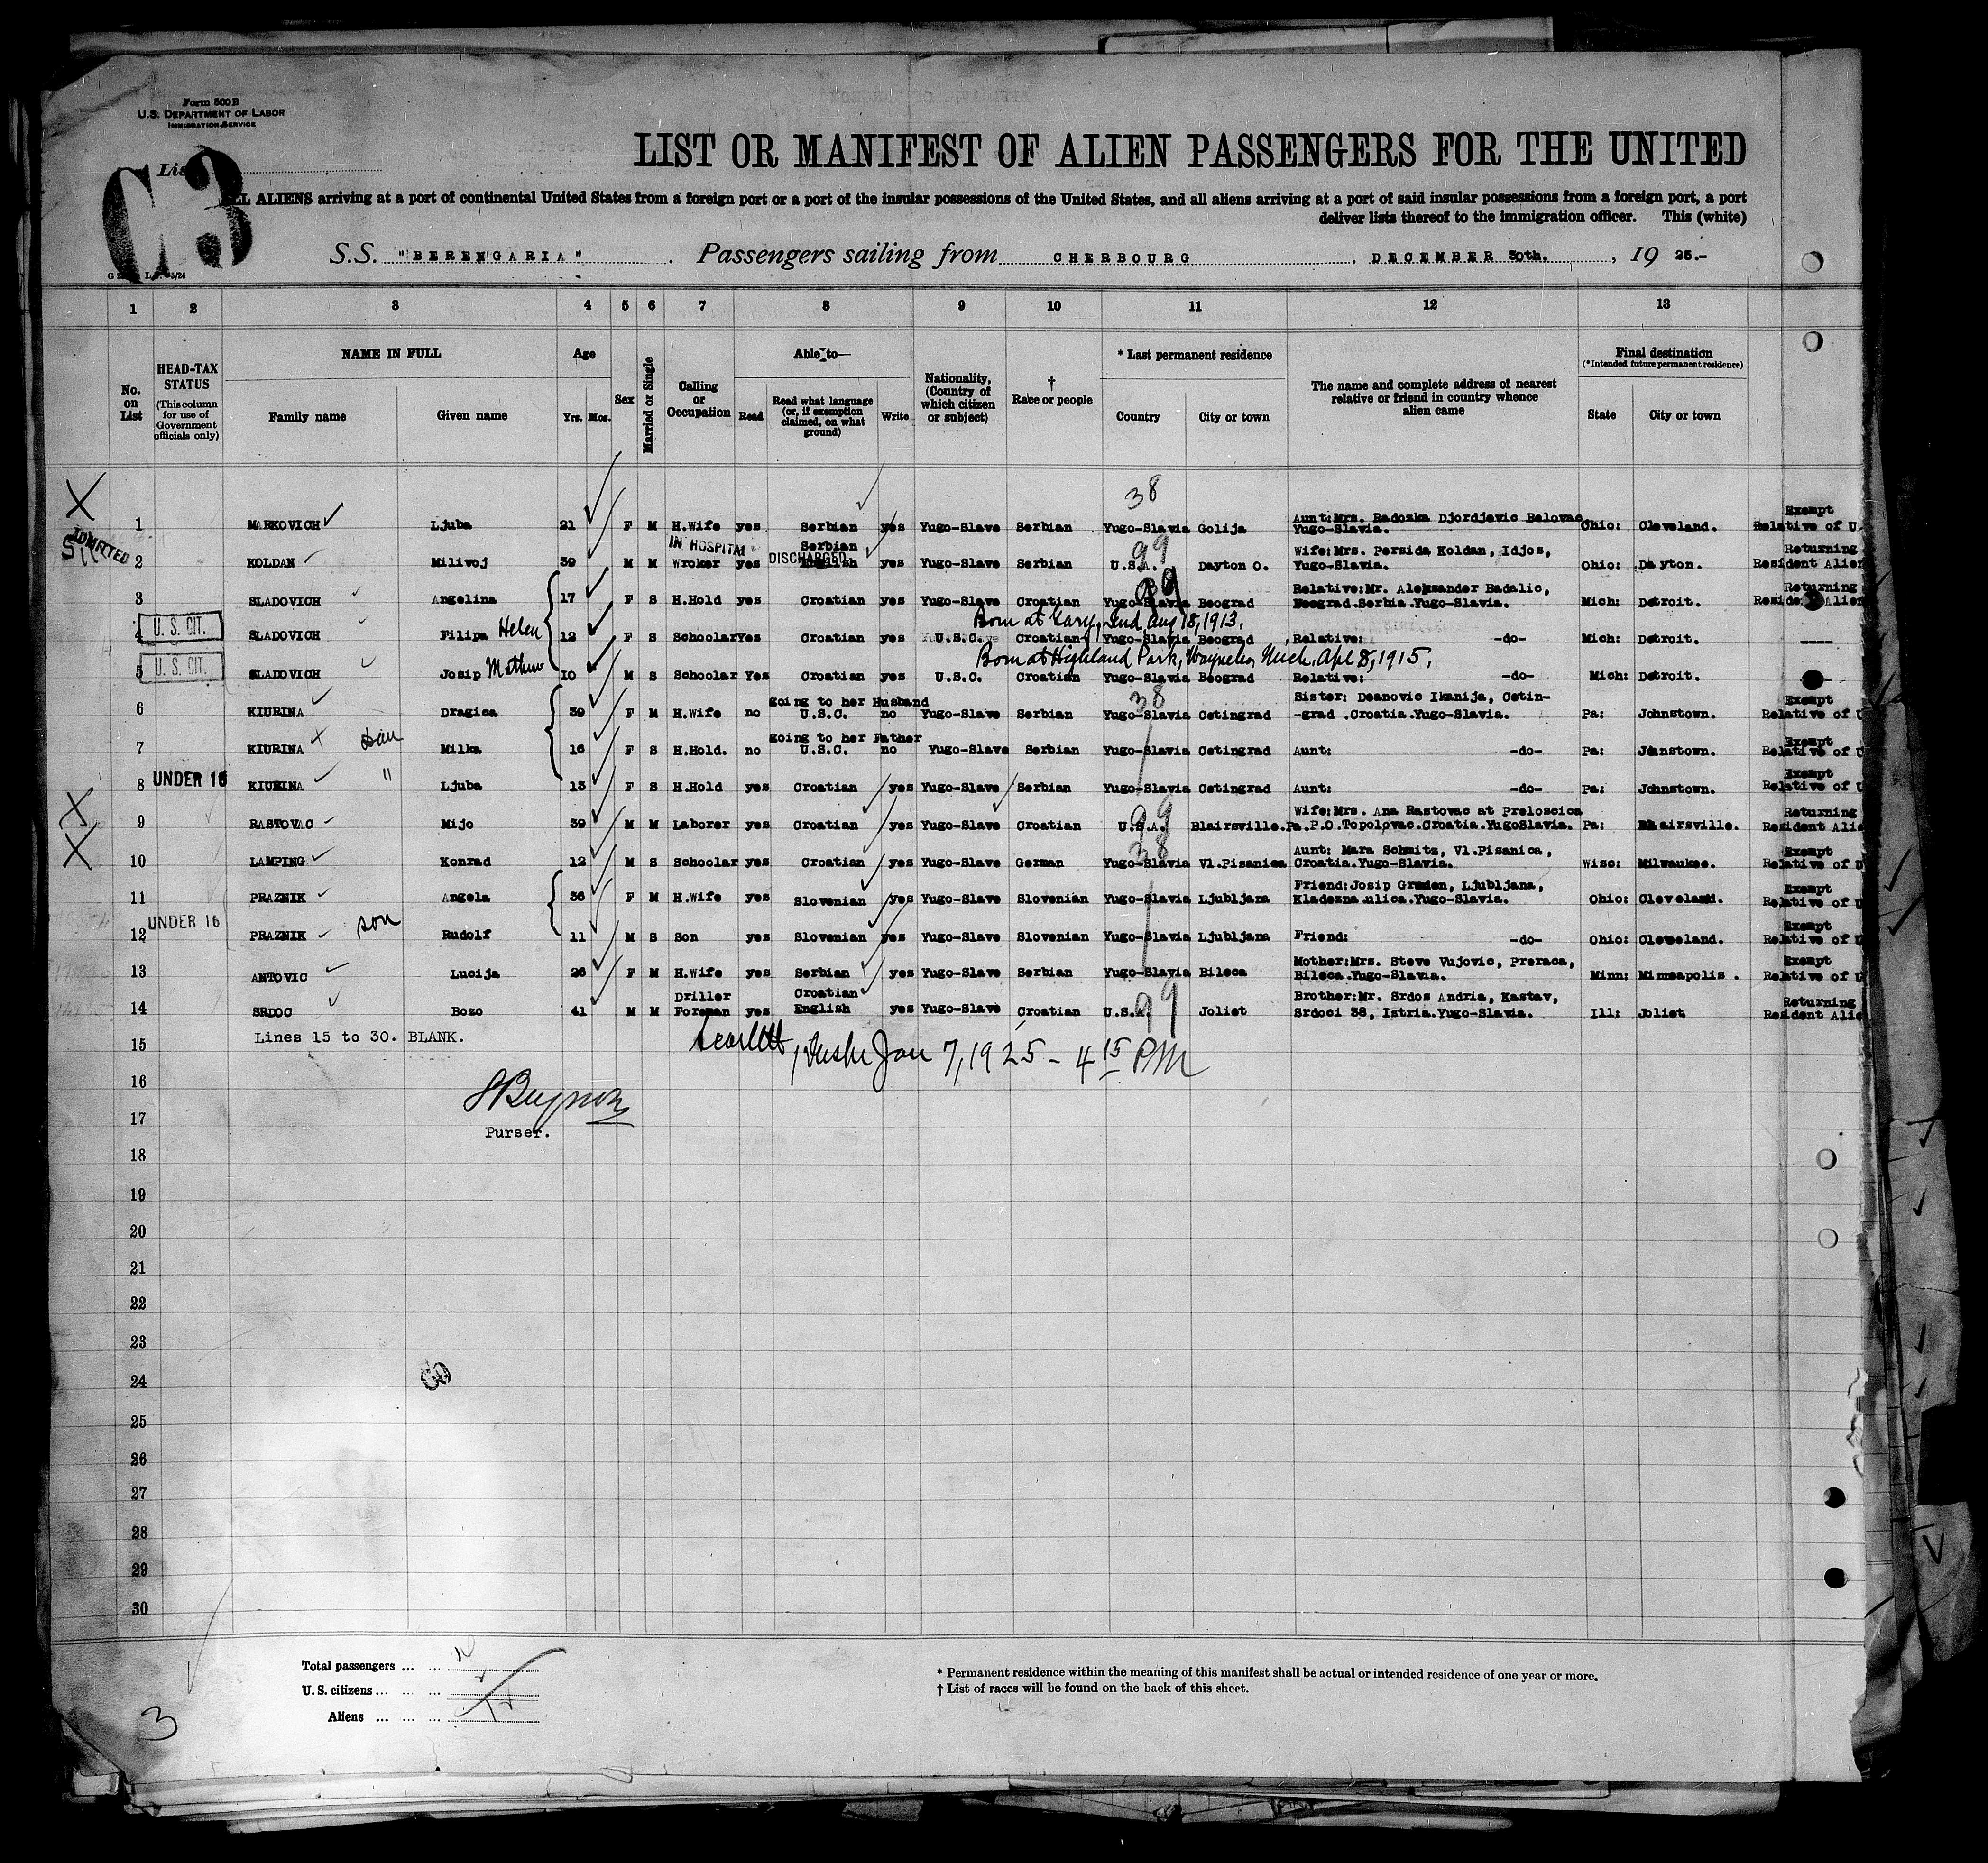 Form 500B
U.S. DEPARTMENT OF LABOR
IMMIGRATION SERVICE
C3
LIST OR MANIFEST OF ALIEN PASSENGERS FOR THE UNITED
ALL ALIENS arriving at a port of continental United States from a foreign port or a port of the insular possessions of the United States, and all aliens arriving at a port of said insular possessions from a foreign port, a port
deliver lists thereof to the immigration officer. This (white)
S.S. "BERENGARIA" . Passengers sailing from CHERBOURG , DECEMBER 30th. , 19 25.-
1 2 3 4 5 6 7 8 9 10 11 12 13
No. on List
HEAD-TAX STATUS (This column for use of Government officials only)
NAME IN FULL
Family name Given name
Age
Yrs. Mos.
Sex
Married or Single
Calling or Occupation
Able to—
Read Read what language (or, if exemption claimed, on what ground) Write
Nationality, (Country of which citizen or subject)
† Race or people
* Last permanent residence
Country City or town
The name and complete address of nearest relative or friend in country whence alien came
Final destination
(*Intended future permanent residence)
State City or town
38
X
ADMITTED
1 MARKOVICH Ljuba 21 F M H.Wife yes Serbian yes Yugo-Slave Serbian Yugo-Slavia Golija Aunt:Mrs. Radozka Djordjevic Belovac Yugo-Slavia. Ohio: Cleveland. Exempt Relative of U.
IN HOSPITAL DISCHARGED
2 KOLDAN Milivoj 39 M M Wroker yes Serbian English yes Yugo-Slave Serbian U.S.A. 99 Dayton O. Wife:Mrs. Persida Koldan, Idjos, Yugo-Slavia. Ohio: Dayton. Returning Resident Alien
3 SLADOVICH Angelina 17 F S H.Hold yes Croatian yes Yugo-Slave Croatian Yugo-Slavia 99 Beograd Relative:Mr. Aleksander Badalic, Beograd.Serbia.Yugo-Slavia. Mich: Detroit. Returning Resident Alien
Born at Gary, Ind Aug 18, 1913.
4 U. S. CIT. SLADOVICH Filipa Helen 12 F S Schoolar Yes Croatian yes U.S.C. Croatian Yugo-Slavia Beograd Relative: -do- Mich: Detroit.
Born at Highland Park, Wayne Co, Mich, Apl 8, 1915.
5 U. S. CIT. SLADOVICH Josip Mathew 10 M S Schoolar Yes Croatian yes U.S.C. Croatian Yugo-Slavia Beograd Relative: -do- Mich: Detroit.
6 KIURINA Dragica 39 F M H.Wife no going to her Husband U.S.C. no Yugo-Slave Serbian Yugo-Slavia 38 Cetingrad Sister: Deanovic Ikanija, Cetin- -grad .Croatia.Yugo-Slavia. Pa: Johnstown. Exempt Relative of U
7 KIURINA Milka 16 F S H.Hold. no going to her Father U.S.C. no Yugo-Slave Serbian Yugo-Slavia Cetingrad Aunt: -do- Pa: Jonnstown. Exempt Relative of U
8 UNDER 16 KIURINA " Ljuba 13 F S H.Hold yes Croatian yes Yugo-Slave Serbian Yugo-Slavia Cetingrad Aunt: -do- Pa: Johnstown. Exempt Relative of U
X
9 RASTOVAC Mijo 39 M M Laborer yes Croatian yes Yugo-Slave Croatian U.S.A. 99 Blairsville.Pa. Wife:Mrs. Ana Rastovac at Preloscica P.O.Topolovac.Croatia.YugoSlavia. Pa: Blairsville. Returning Resident Alie
X
10 LAMPING Konrad 12 M S Schoolar yes Croatian yes Yugo-Slave German Yugo-Slavia 38 Vl.Pisanica Aunt: Mara Schmitz, Vl.Pisanica, Croatia.Yugo-Slavia. Wisc: Milwaukee. Exempt Relative of U
11 PRAZNIK Angela 36 F M H.Wife yes Slovenian yes Yugo-Slave Slovenian Yugo-Slavia Ljubljana Friend:Josip Gruden, Ljubljana, Kladezna ulica.Yugo-Slavia. Ohio: Cleveland. Exempt Relative of U
12 UNDER 16 PRAZNIK son Rudolf 11 M S Son yes Slovenian yes Yugo-Slave Slovenian Yugo-Slavia Ljubljana Friend: -do- Ohio: Cleveland. Exempt Relative of U
13 ANTOVIC Lucija 26 F M H.Wife yes Serbian yes Yugo-Slave Serbian Yugo-Slavia Bileca Mother:Mrs. Steve Vujovic, Preraca, Bileca.Yugo-Slavia. Minn: Minneapolis. Exempt Relative of U
14 SRDOC Bozo 41 M M Driller Foreman yes Croatian English yes Yugo-Slave Croatian U.S.A. 99 Joliet Brother:Mr. Srdos Andria, Kastav, Srdoci 38, Istria.Yugo-Slavia. Ill: Joliet Returning Resident Alie
Lines 15 to 30. BLANK.
15 Scarlett, Jan 7, 1925 - 4 15 PM
16
17
Purser.
18
19
20
21
22
23
24
25
26
27
28
29
30
Total passengers ... ...
U. S. citizens ... ... ...
Aliens ... ... ...
* Permanent residence within the meaning of this manifest shall be actual or intended residence of one year or more.
† List of races will be found on the back of this sheet.
3